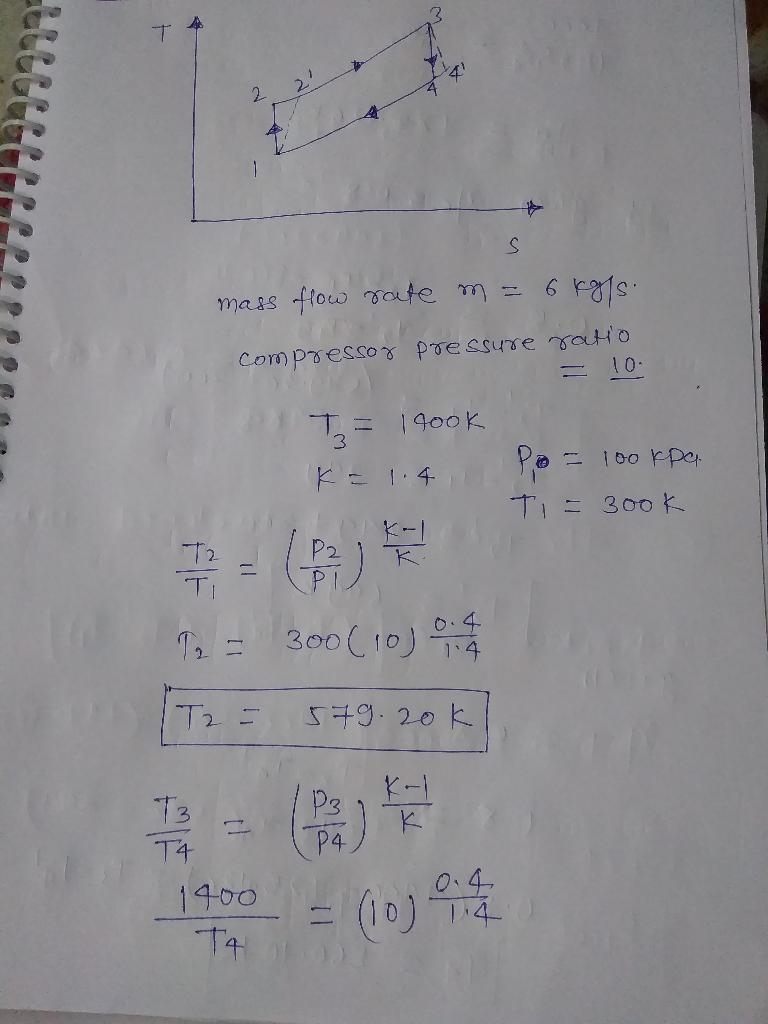 T
3
2 2' 4 4'
1
S
mass flow rate m = 6 kg/s.
compressor pressure ratio
= 10.
T3 = 1400K
K = 1.4 P1 = 100 KPa
T1 = 300 K
T2/T1 = (P2/P1)^(K-1/K)
T2 = 300(10)^(0.4/1.4)
T2 = 579.20 K
T3/T4 = (P3/P4)^(K-1/K)
1400/T4 = (10)^(0.4/1.4)